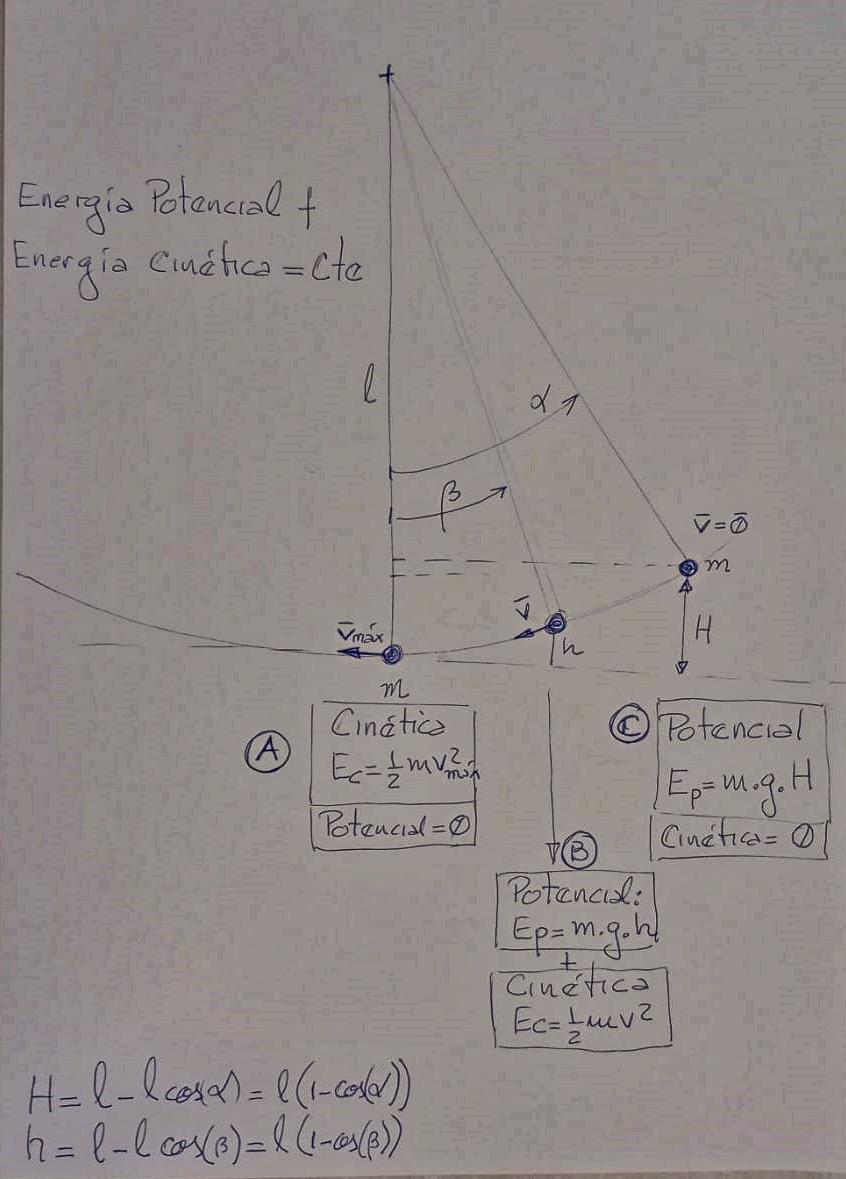 Energía Potencial +
Energía Cinética = Cte
l
α
β
v̄=0̄
m
v̄
H
v̄máx
h
m
A
Cinética
Ec=½mv²máx
Potencial=0
C
Potencial
Ep=m.g.H
Cinética=0
B
Potencial:
Ep=m.g.h
+
Cinética
Ec=½mv²
H= l-l cos(α)= l(1-cos(α))
h= l-l cos(β)= l(1-cos(β))